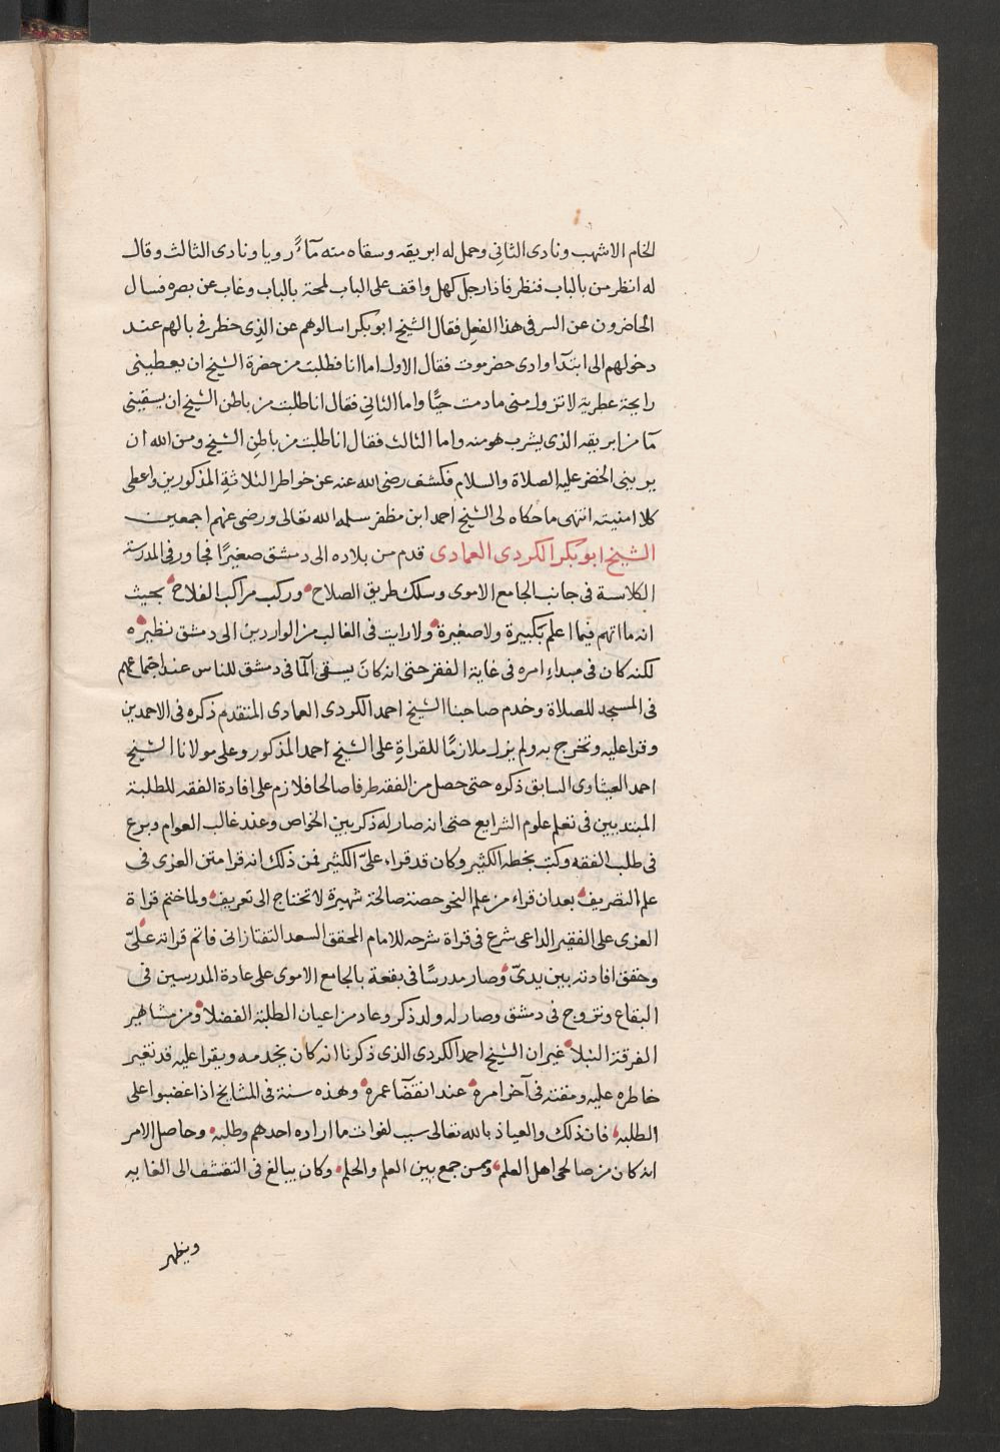 الخام الاشهب ونادى الثانى وحمل له ابريقه وسقاه منه مآءً رويا ونادى الثالث وقال
له انظر من بالباب فنظر فاذا رجل كهل واقف على الباب لمحته بالباب وغاب عن بصره فسال
الحاضرون عن السر فى هذا الفعل فقال الشيخ ابو بكر اسالوهم عن الذى خطر فى بالهم عند
دخولهم الى ابتدآ وادى حضرموت فقال الاول اما انا فطلبت من حضرة الشيخ ان يعطينى
رايحة عطرية لا تزول منى ما دمت حيًّا واما الثانى فقال انا طلبت من باطن الشيخ ان يسقينى
مآ من ابريقه الذى يشرب هو منه واما الثالث فقال انا طلبت من باطن الشيخ ومن الله ان
يرينى الخضر عليه الصلاة والسلام فكشف رضى الله عنه عن خواطر الثلاثة المذكورين واعطى
كلا امنيته انتهى ما حكاه لى الشيخ احمد ابن مظفر سلمه الله تعالى ورضى عنهم اجمعين
الشيخ ابو بكر الكردى العمادى قدم من بلاده الى دمشق صغيرًا فجاور فى المدرسة
الكلاسة فى جانب الجامع الاموى وسلك طريق الصلاح وركب مراكب الفلاح بحيث
انه ما اتهم فيما اعلم بكبيرة ولا صغيرة ولا رايت فى الغالب من الواردين الى دمشق نظيره
لكنه كان فى مبداء امره فى غاية الفقر حتى انه كان يسقى المآ فى دمشق للناس عند اجتماعهم
فى المسجد للصلاة وخدم صاحبنا الشيخ احمد الكردى العمادى المتقدم ذكره فى الاحمدين
وقرا عليه وتخرج به ولم يزل ملازمًا للقراة على الشيخ احمد المذكور وعلى مولانا الشيخ
احمد العيثاوى السابق ذكره حتى حصل من الفقه طرفا صالحا فلازم على افادة الفقه للطلبة
المبتديين فى تعلم علوم الشرايع حتى انه صار له ذكر بين الخواص وعند غالب العوام وبرع
فى طلب الفقه وكتب بخطه الكثير وكان قد قراء علىّ الكثير فمن ذلك انه قرا متن العزى فى
علم التصريف بعد ان قراء من علم النحو حصة صالحة شهيرة لا تحتاج الى تعريف ولما ختم قراة
العزى على الفقير الداعى شرع فى قراة شرحه للامام المحقق السعد التفتازانى فاتم قراته علىّ
وحقق افادته بين يدىّ وصار مدرسًا فى بقعة بالجامع الاموى على عادة المدرسين فى
البقاع وتزوج فى دمشق وصار له ولد ذكر وعاد من اعيان الطلبة الفضلا ومن مشاهير
الفرقة النبلا غير ان الشيخ احمد الكردى الذى ذكرنا انه كان يخدمه ويقرا عليه قد تغير
خاطره عليه ومقته فى آخر امره عند انقضآ عمره وهذه سنة فى المشايخ اذا غضبوا على
الطلبه فان ذلك والعياذ بالله تعالى سبب لفوات ما اراده احدهم وطلبه وحاصل الامر
انه كان من صالحى اهل العلم وممن جمع بين العلم والحلم وكان يبالغ فى التقشف الى الغايه
ويظهر